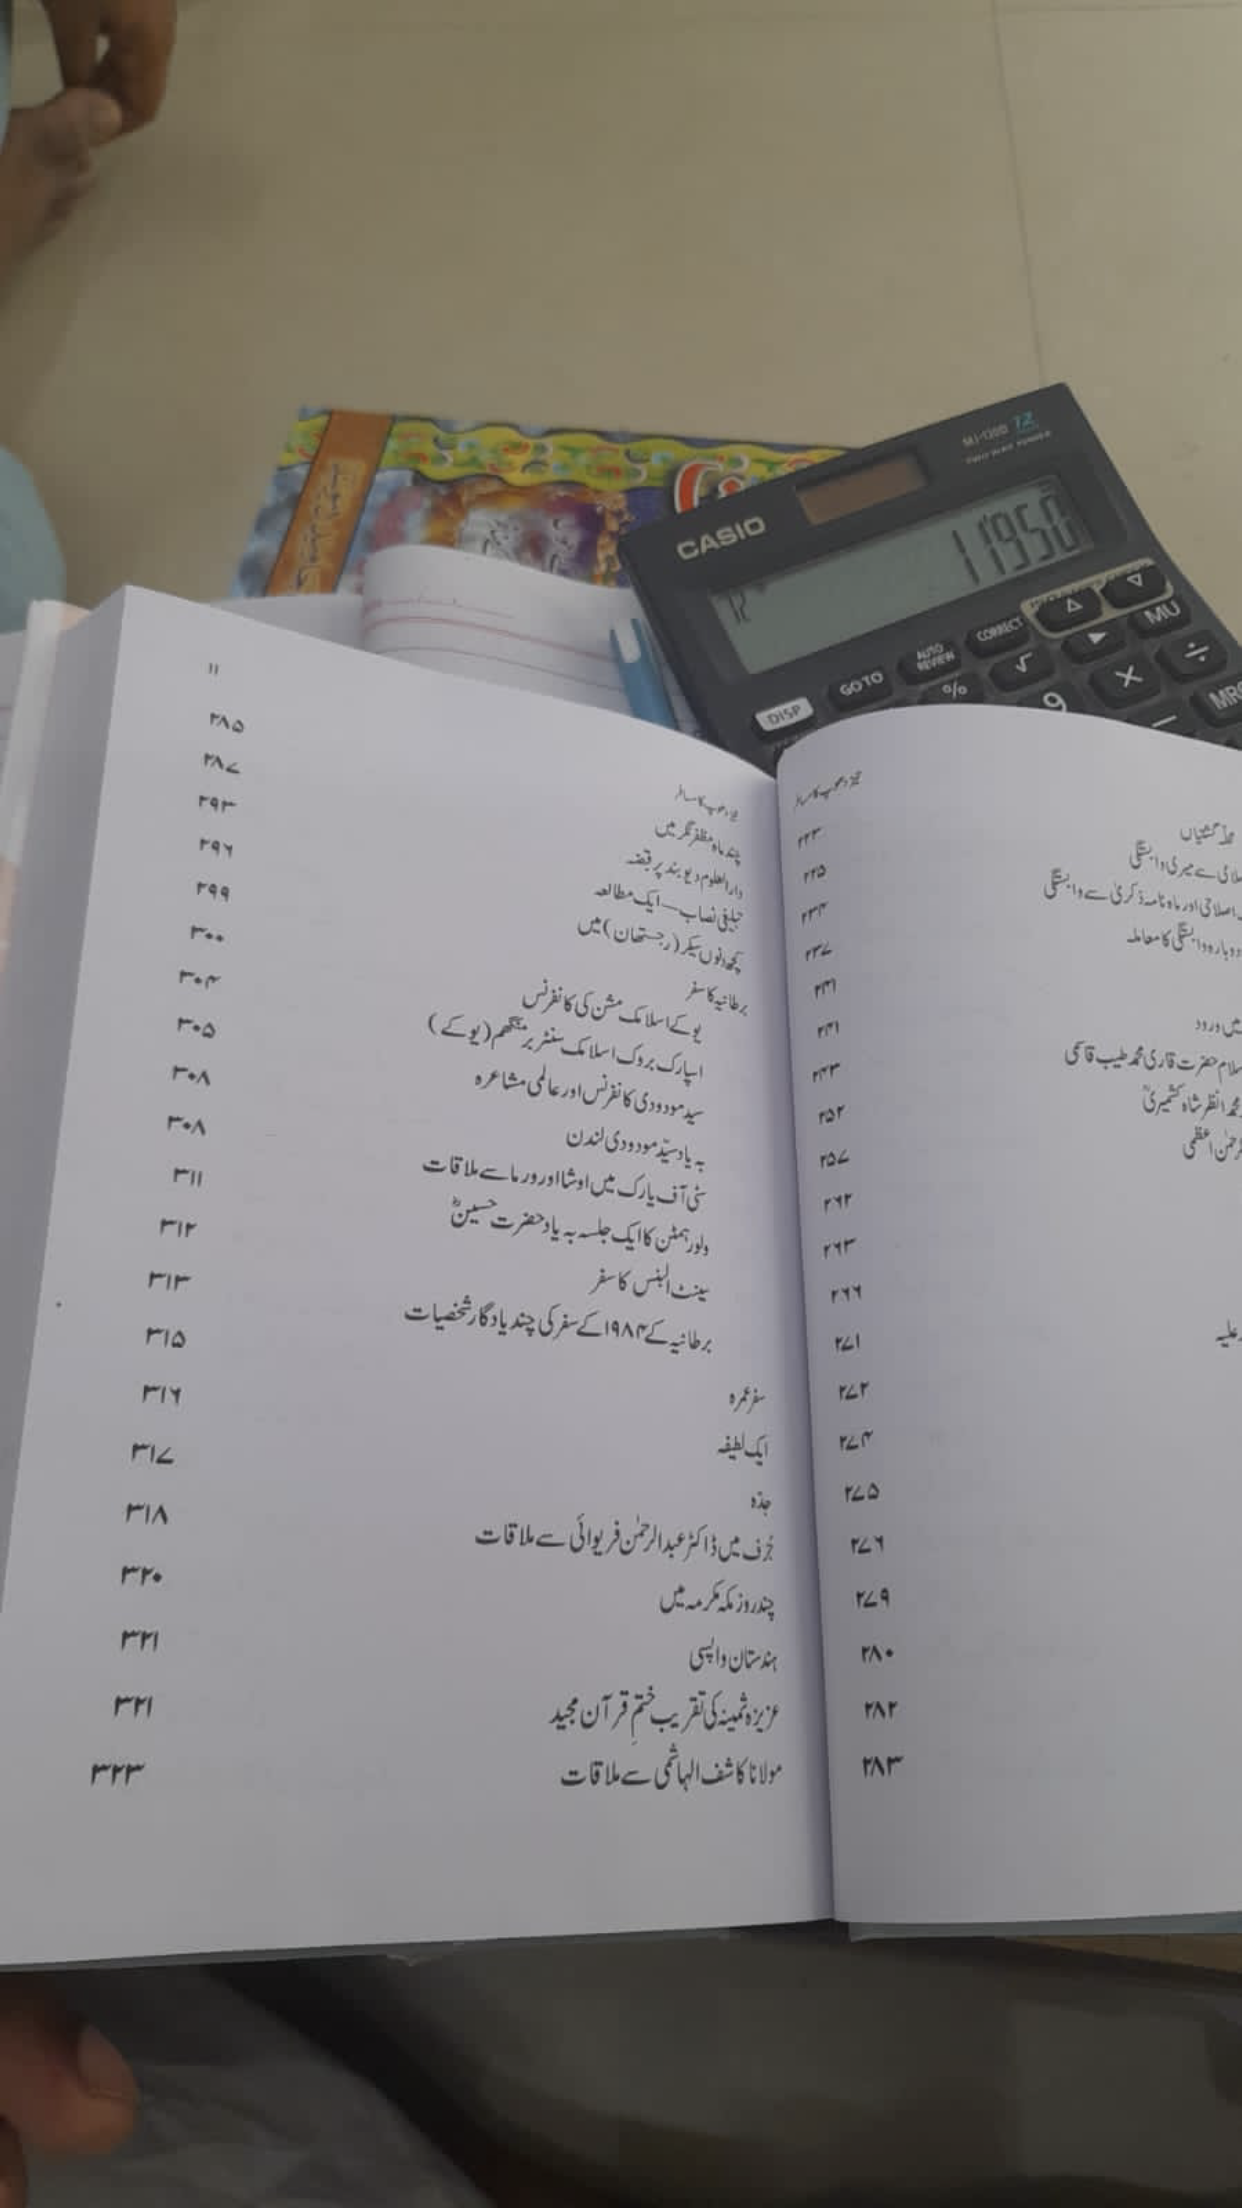 CASIO
MJ-120D 12
TWO WAY POWER
11950
12
DISP
GO TO
AUTO REVIEW
CORRECT
MU
%
√
÷
9
×
−
۲۲۳
۲۲۵
سے میری وابستگی
۲۳۴
اصلاحی اور ماہ نامہ ذکریٰ سے وابستگی
۲۳۷
دوبارہ وابستگی کا معاملہ
۲۴۱
۲۴۱
میں ورود
۲۴۳
حضرت قاری محمد طیب قاسمی
۲۵۲
محمد انظر شاہ کشمیریؒ
۲۵۷
۲۶۲
۲۶۳
۲۶۶
۲۷۱
۲۷۲
۲۷۴
۲۷۵
۲۷۶
۲۷۹
۲۸۰
۲۸۲
۲۸۳
۱۱
چند ماہ مظفر نگر میں ۲۸۵
دارالعلوم دیوبند پر قبضہ ۲۸۷
تبلیغی نصاب — ایک مطالعہ ۲۹۳
کچھ دنوں سیکر (رجستھان) میں ۲۹۶
برطانیہ کا سفر ۲۹۹
یو کے اسلامک مشن کی کانفرنس ۳۰۰
اسپارک بروک اسلامک سنٹر برمنگھم (یو کے) ۳۰۴
سید مودودی کانفرنس اور عالمی مشاعرہ ۳۰۵
بہ یاد سیّد مودودی لندن ۳۰۸
سٹی آف یارک میں اوشا اور ورما سے ملاقات ۳۰۸
ولورہمٹن کا ایک جلسہ بہ یاد حضرت حسینؓ ۳۱۱
سینٹ البنس کا سفر ۳۱۲
برطانیہ کے ۱۹۸۴ کے سفر کی چند یادگار شخصیات ۳۱۳
سفر عمرہ ۳۱۵
ایک لطیفہ ۳۱۶
جدّہ ۳۱۷
جُرف میں ڈاکٹر عبدالرحمٰن فریوائی سے ملاقات ۳۱۸
چند روز مکہ مکرمہ میں ۳۲۰
ہندستان واپسی ۳۲۱
عزیزہ ثمینہ کی تقریب ختمِ قرآن مجید ۳۲۱
مولانا کاشف الہاشمی سے ملاقات ۳۲۳